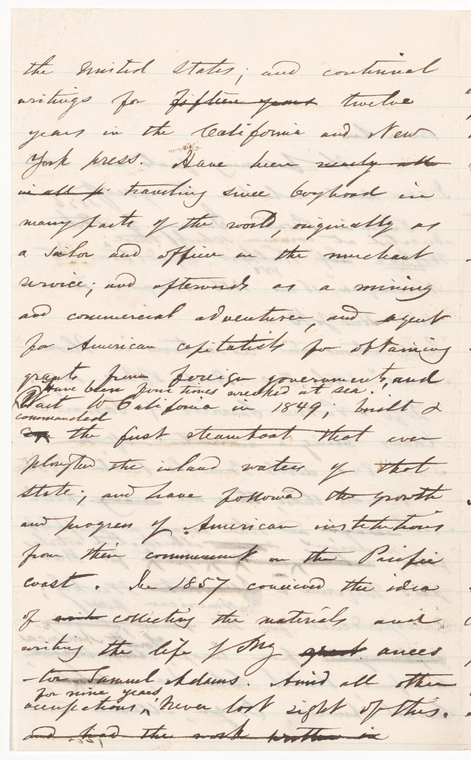 the United States; and continual
writings for fifteen years twelve
years in the California and New
York press. Have been nearly all
in all traveling since boyhood in
many parts of the world, originally as
a sailor and officer in the merchant
service; and afterwards as a mining
and commercial adventurer, and agent
for American capitalists for obtaining
grants from foreign governments, and
Have been four times wrecked at sea.
Went to California in 1849; built &
commanded
the first steamboat that ever
ploughed the inland waters of that
State; and have followed the growth
and progress of American institutions
from their commencement on the Pacific
coast. In 1857 conceived the idea
of collecting the materials and
writing the life of my great ances
-tor Samuel Adams. Amid all other
for nine years
occupations, never lost sight of this.
and had the work written in